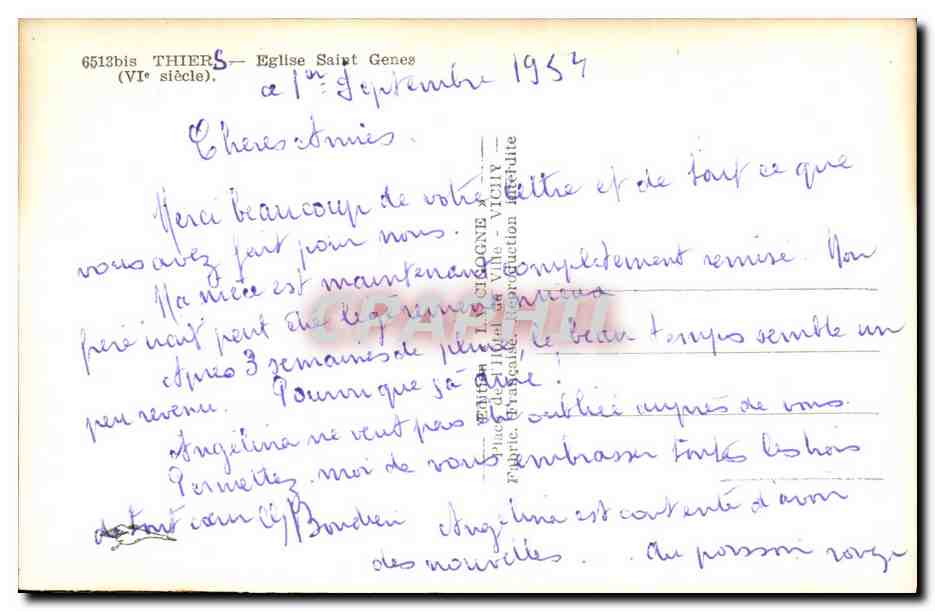 6513bis THIERS — Eglise Saint Genes
(VIe siècle).
ce 1er Septembre 1954
Cheres Amies.
Merci beaucoup de votre lettre et de tout ce que
vous avez fait pour nous.
Ma nièce est maintenant complètement remise. Mon
frère irait peut être légèrement mieux
Après 3 semaines de pluie le beau temps semble un
peu revenu. Pourvu que ça dure !
Angélina ne veut pas être oubliée auprès de vous.
Permettez moi de vous embrasser toutes les trois
de tout cœur
Angélina est contente d'avoir
des nouvelles . . du poisson rouge
Edition "LA CIGOGNE"
Place de l'Hôtel de Ville - VICHY
Fabric. Française. Reproduction Interdite
CPARAMA